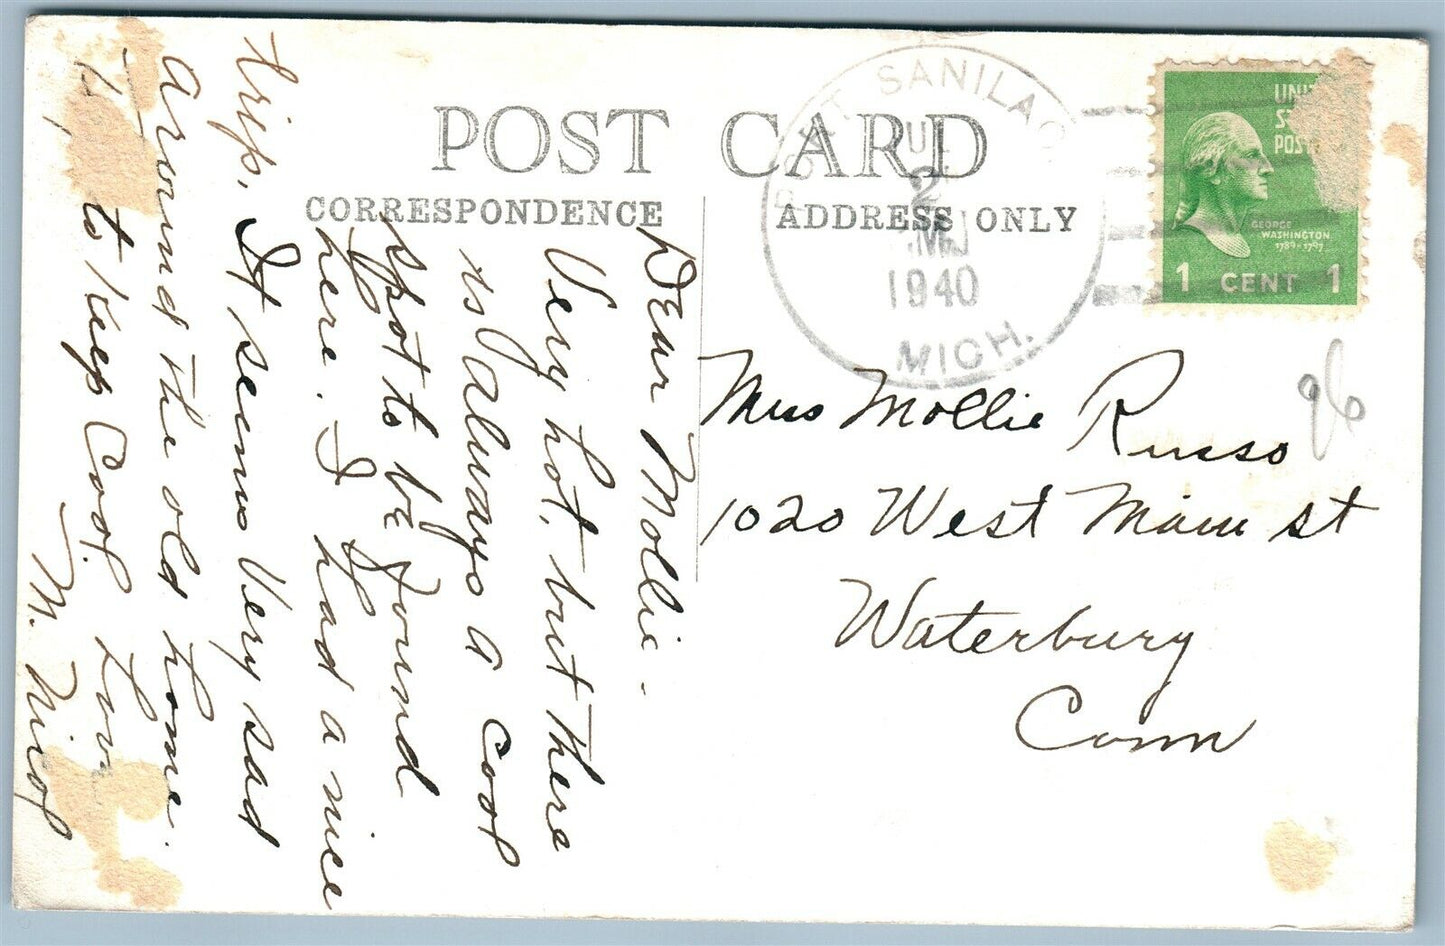 POST CARD
CORRESPONDENCE
ADDRESS ONLY
PORT SANILAC
JUL
2
M
1940
MICH.
UNIT
S
POST
GEORGE
WASHINGTON
1789-1797
1 CENT 1
96
Miss Mollie Russo
1020 West Main st
Waterbury
Conn
Dear Mollie -
Very hot, but there
is always a cool
spot to be found
here. I had a nice
trip. It seems very sad
around the old home.
to keep cool. Love
M.